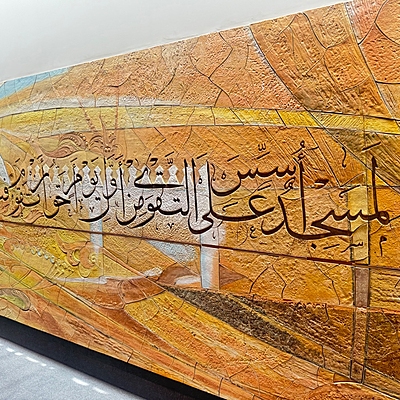 لَمَسْجِدٌ أُسِّسَ عَلَى التَّقْوَىٰ مِنْ أَوَّلِ يَوْمٍ أَحَقُّ أَنْ تَقُومَ